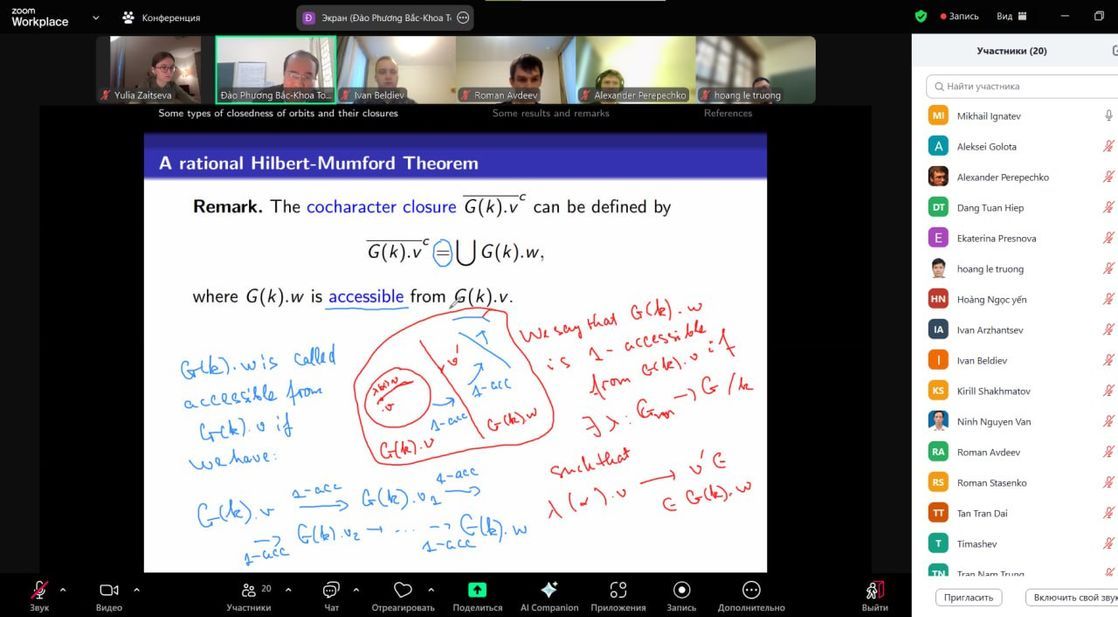 zoom
Workplace
Конференция
Экран (Đào Phương Bắc-Khoa T
Запись
Вид
Yulia Zaitseva
Đào Phương Bắc-Khoa To...
Ivan Beldiev
Roman Avdeev
Alexander Perepechko
hoang le truong
Some types of closedness of orbits and their closures
Some results and remarks
References
A rational Hilbert-Mumford Theorem
Remark. The cocharacter closure \overline{G(k).v}^c can be defined by
\overline{G(k).v}^c = ⋃ G(k).w,
where G(k).w is accessible from G(k).v.
G(k).w is called
accessible from
G(k).v if
we have:
G(k).v 1-acc → G(k).v₁ 1-acc →
→ 1-acc G(k).v₂ → ... → 1-acc G(k).w
v'
.v
1-acc
1-acc
G(k).v
G(k).w
We say that G(k).w
is 1-accessible
from G(k).v if
∃ λ: Gm → G /k
such that
λ(α).v → v' ∈
∈ G(k).w
Участники (20)
Найти участника
MI Mikhail Ignatev
A Aleksei Golota
Alexander Perepechko
DT Dang Tuan Hiep
E Ekaterina Presnova
hoang le truong
HN Hoàng Ngọc yến
IA Ivan Arzhantsev
I Ivan Beldiev
KS Kirill Shakhmatov
Ninh Nguyen Van
RA Roman Avdeev
RS Roman Stasenko
TT Tan Tran Dai
T Timashev
TN Tran Nam Trung
Пригласить
Включить свой звук
Звук
Видео
20
Участники
Чат
Отреагировать
Поделиться
AI Companion
Приложения
Запись
Дополнительно
Выйти